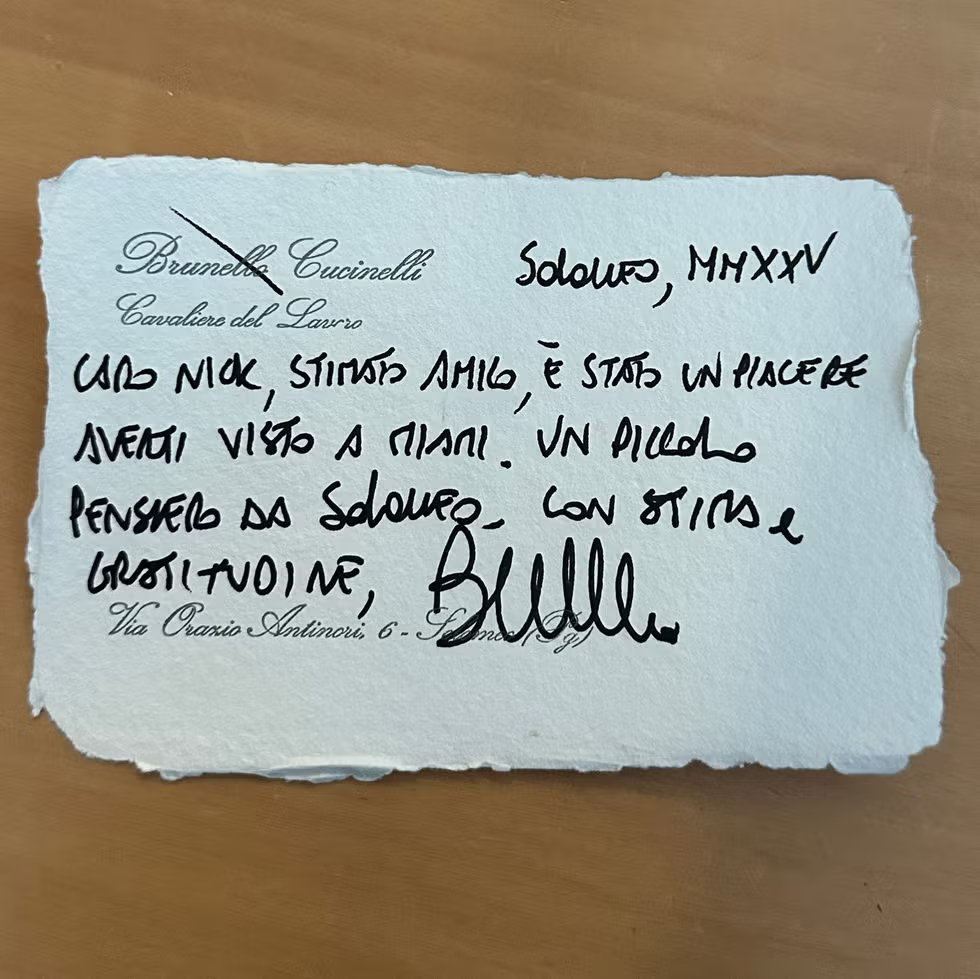 Brunello Cucinelli
Cavaliere del Lavoro
Solomeo, MMXXV
CARO NICK, STIMATO AMICO, È STATO UN PIACERE
AVERTI VISTO A MIAMI. UN PICCOLO
PENSIERO DA SOLOMEO. CON STIMA e
GRATITUDINE,
Brunello
Via Orazio Antinori, 6 - Solomeo (Pg)